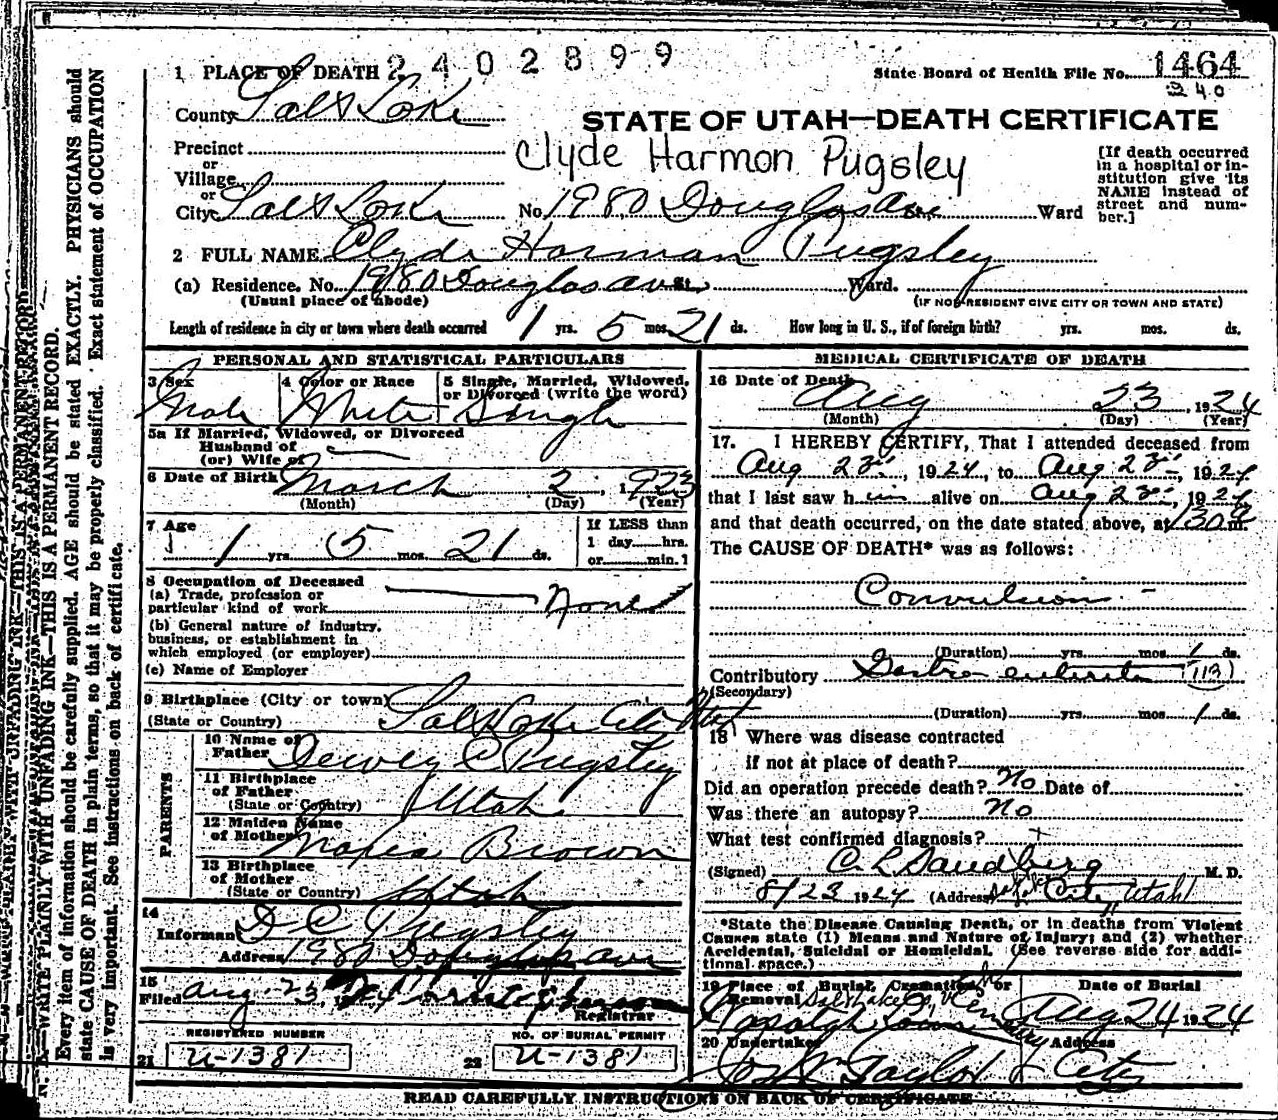 2402899
1 PLACE OF DEATH
State Board of Health File No. 1464
240
County Salt Lake
STATE OF UTAH—DEATH CERTIFICATE
Precinct
Clyde Harmon Pugsley
or
Village
or
City Salt Lake No. 1980 Douglas Ave St. Ward
[If death occurred
in a hospital or in-
stitution give its
NAME instead of
street and num-
ber.]
2 FULL NAME Clyde Harman Pugsley
(a) Residence. No. 1980 Douglas ave St. Ward.
(Usual place of abode)
(IF NON-RESIDENT GIVE CITY OR TOWN AND STATE)
Length of residence in city or town where death occurred 1 yrs. 5 mos. 21 ds. How long in U. S., if of foreign birth? yrs. mos. ds.
PERSONAL AND STATISTICAL PARTICULARS
3 Sex
Male
4 Color or Race
White
5 Single, Married, Widowed,
or Divorced (write the word)
Single
5a If Married, Widowed, or Divorced
Husband of
(or) Wife of
6 Date of Birth March 2, 1923
(Month) (Day) (Year)
7 Age
1 yrs. 5 mos. 21 ds.
If LESS than
1 day hrs.
or min.
8 Occupation of Deceased
(a) Trade, profession or
particular kind of work None
(b) General nature of industry,
business, or establishment in
which employed (or employer)
(c) Name of Employer
9 Birthplace (City or town) Salt Lake City Utah
(State or Country)
PARENTS
10 Name of
Father Dewey C Pugsley
11 Birthplace
of Father
(State or Country) Utah
12 Maiden Name
of Mother Brown
13 Birthplace
of Mother
(State or Country) Utah
14
Informant D C Pugsley
Address 1980 Douglas ave
15
Filed Aug 23, 19
Registrar
REGISTERED NUMBER
21 U-1381
NO. OF BURIAL PERMIT
22 U-1381
MEDICAL CERTIFICATE OF DEATH
16 Date of Death
Aug 23, 1924
(Month) (Day) (Year)
17. I HEREBY CERTIFY, That I attended deceased from
Aug 23, 1924, to Aug 23, 1924
that I last saw him alive on Aug 23, 1924
and that death occurred, on the date stated above, at 130 m.
The CAUSE OF DEATH* was as follows:
Convulsions
(Duration) yrs. mos. 1 ds.
Contributory Gastro enteritis (113)
(Secondary)
(Duration) yrs. mos. 1 ds.
18 Where was disease contracted
if not at place of death?
Did an operation precede death? No Date of
Was there an autopsy? No
What test confirmed diagnosis?
(Signed) C. L. Sandberg M. D.
8/23 1924 (Address) City, Utah
*State the Disease Causing Death, or in deaths from Violent
Causes state (1) Means and Nature of Injury; and (2) whether
Accidental, Suicidal or Homicidal. (See reverse side for addi-
tional space.)
19 Place of Burial, Cremation, or
Removal Salt Lake Co,
Wasatch Lawn Cemetery
Date of Burial
Aug 24 1924
20 Undertaker
Taylor
Address
City
READ CAREFULLY INSTRUCTIONS ON BACK OF CERTIFICATE
N. B.—WRITE PLAINLY WITH UNFADING INK—THIS IS A PERMANENT RECORD.
Every item of information should be carefully supplied. AGE should be stated EXACTLY. PHYSICIANS should
state CAUSE OF DEATH in plain terms, so that it may be properly classified. Exact statement of OCCUPATION
is very important. See instructions on back of certificate.